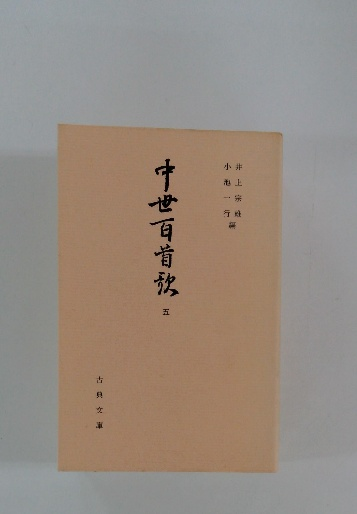 井上宗雄
小池一行 編
中世百首歌
五
古典文庫